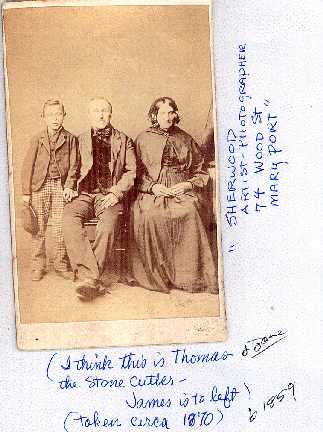 " SHERWOOD
ARTIST-PHOTOGRAPHER
74 WOOD ST
MARY PORT "
(I think this is Thomas
& Jane
the Stone Cutler -
James is to left)
b 1859
(taken circa 1870)